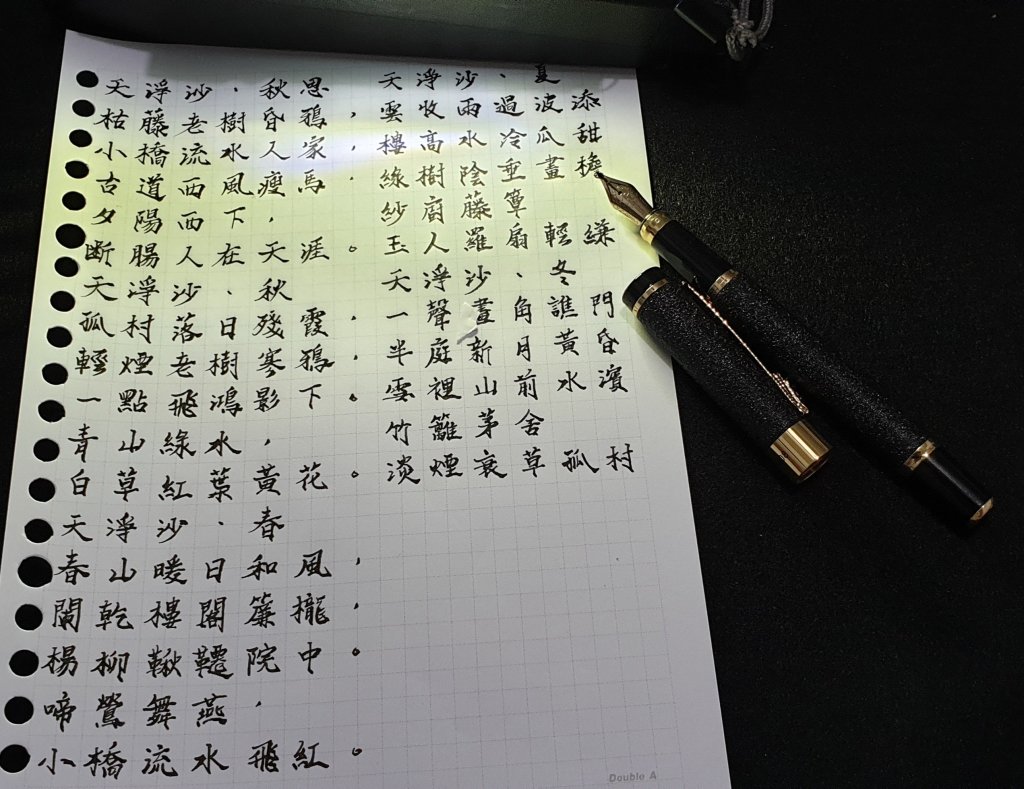 天淨沙·秋思
枯藤老樹昏鴉,
小橋流水人家,
古道西風瘦馬。
夕陽西下,
斷腸人在天涯。
天淨沙·秋
孤村落日殘霞,
輕煙老樹寒鴉,
一點飛鴻影下。
青山綠水,
白草紅葉黃花。
天淨沙·春
春山暖日和風,
闌乾樓閣簾櫳,
楊柳鞦韆院中。
啼鶯舞燕,
小橋流水飛紅。
天淨沙·夏
雲收雨過波添
樓高水冷瓜甜
綠樹陰垂畫檐
紗廚藤簟
玉人羅扇輕縑
天淨沙·冬
一聲畫角譙門
半庭新月黃昏
雪裡山前水濱
竹籬茅舍
淡煙衰草孤村
Double A